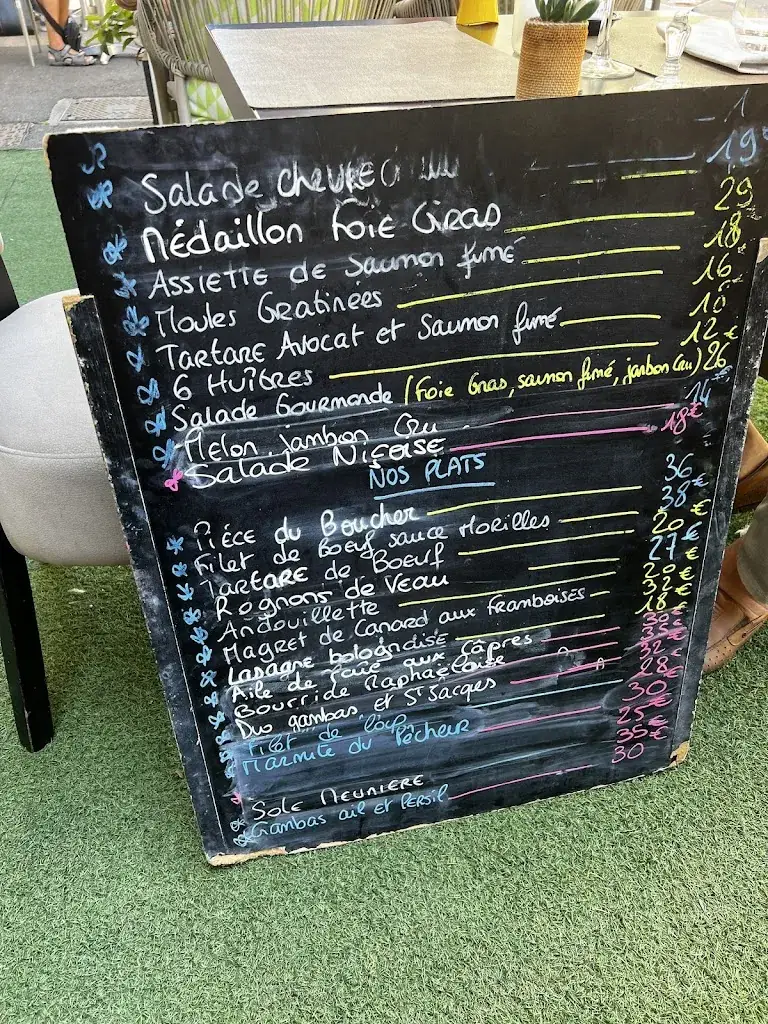 Salade chèvre 19
Médaillon Foie Gras 29
Assiette de Saumon fumé 18
Moules Gratinées 16
Tartare Avocat et Saumon fumé
6 Huîtres 12€
Salade Gourmande (Foie Gras, saumon fumé, jambon Cru) 26
Melon jambon Cru 14
Salade Niçoise 18€
NOS PLATS
Pièce du Boucher 36
Filet de Boeuf sauce Morilles 38€
Tartare de Boeuf 20€
Rognons de Veau 27€
Andouillette 20€
Magret de Canard aux Framboises 32€
Lasagne bolognaise 18€
Aile de Raie aux Câpres
Bourride Raphaëloise 35€
Duo gambas et St Jacques
Filet de loup
Marmite du Pêcheur
Sole Meunière
Gambas ail et Persil 30